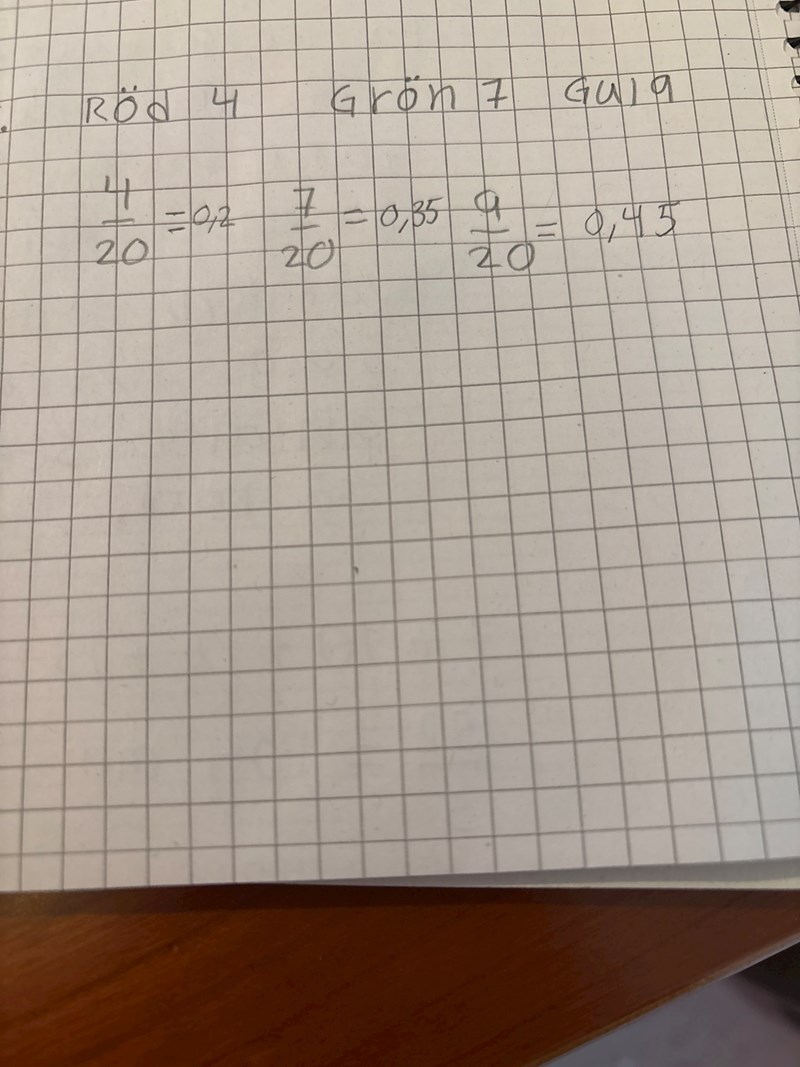 Röd 4 Grön 7 Gul 9
4/20 = 0,2 7/20 = 0,35 9/20 = 0,45